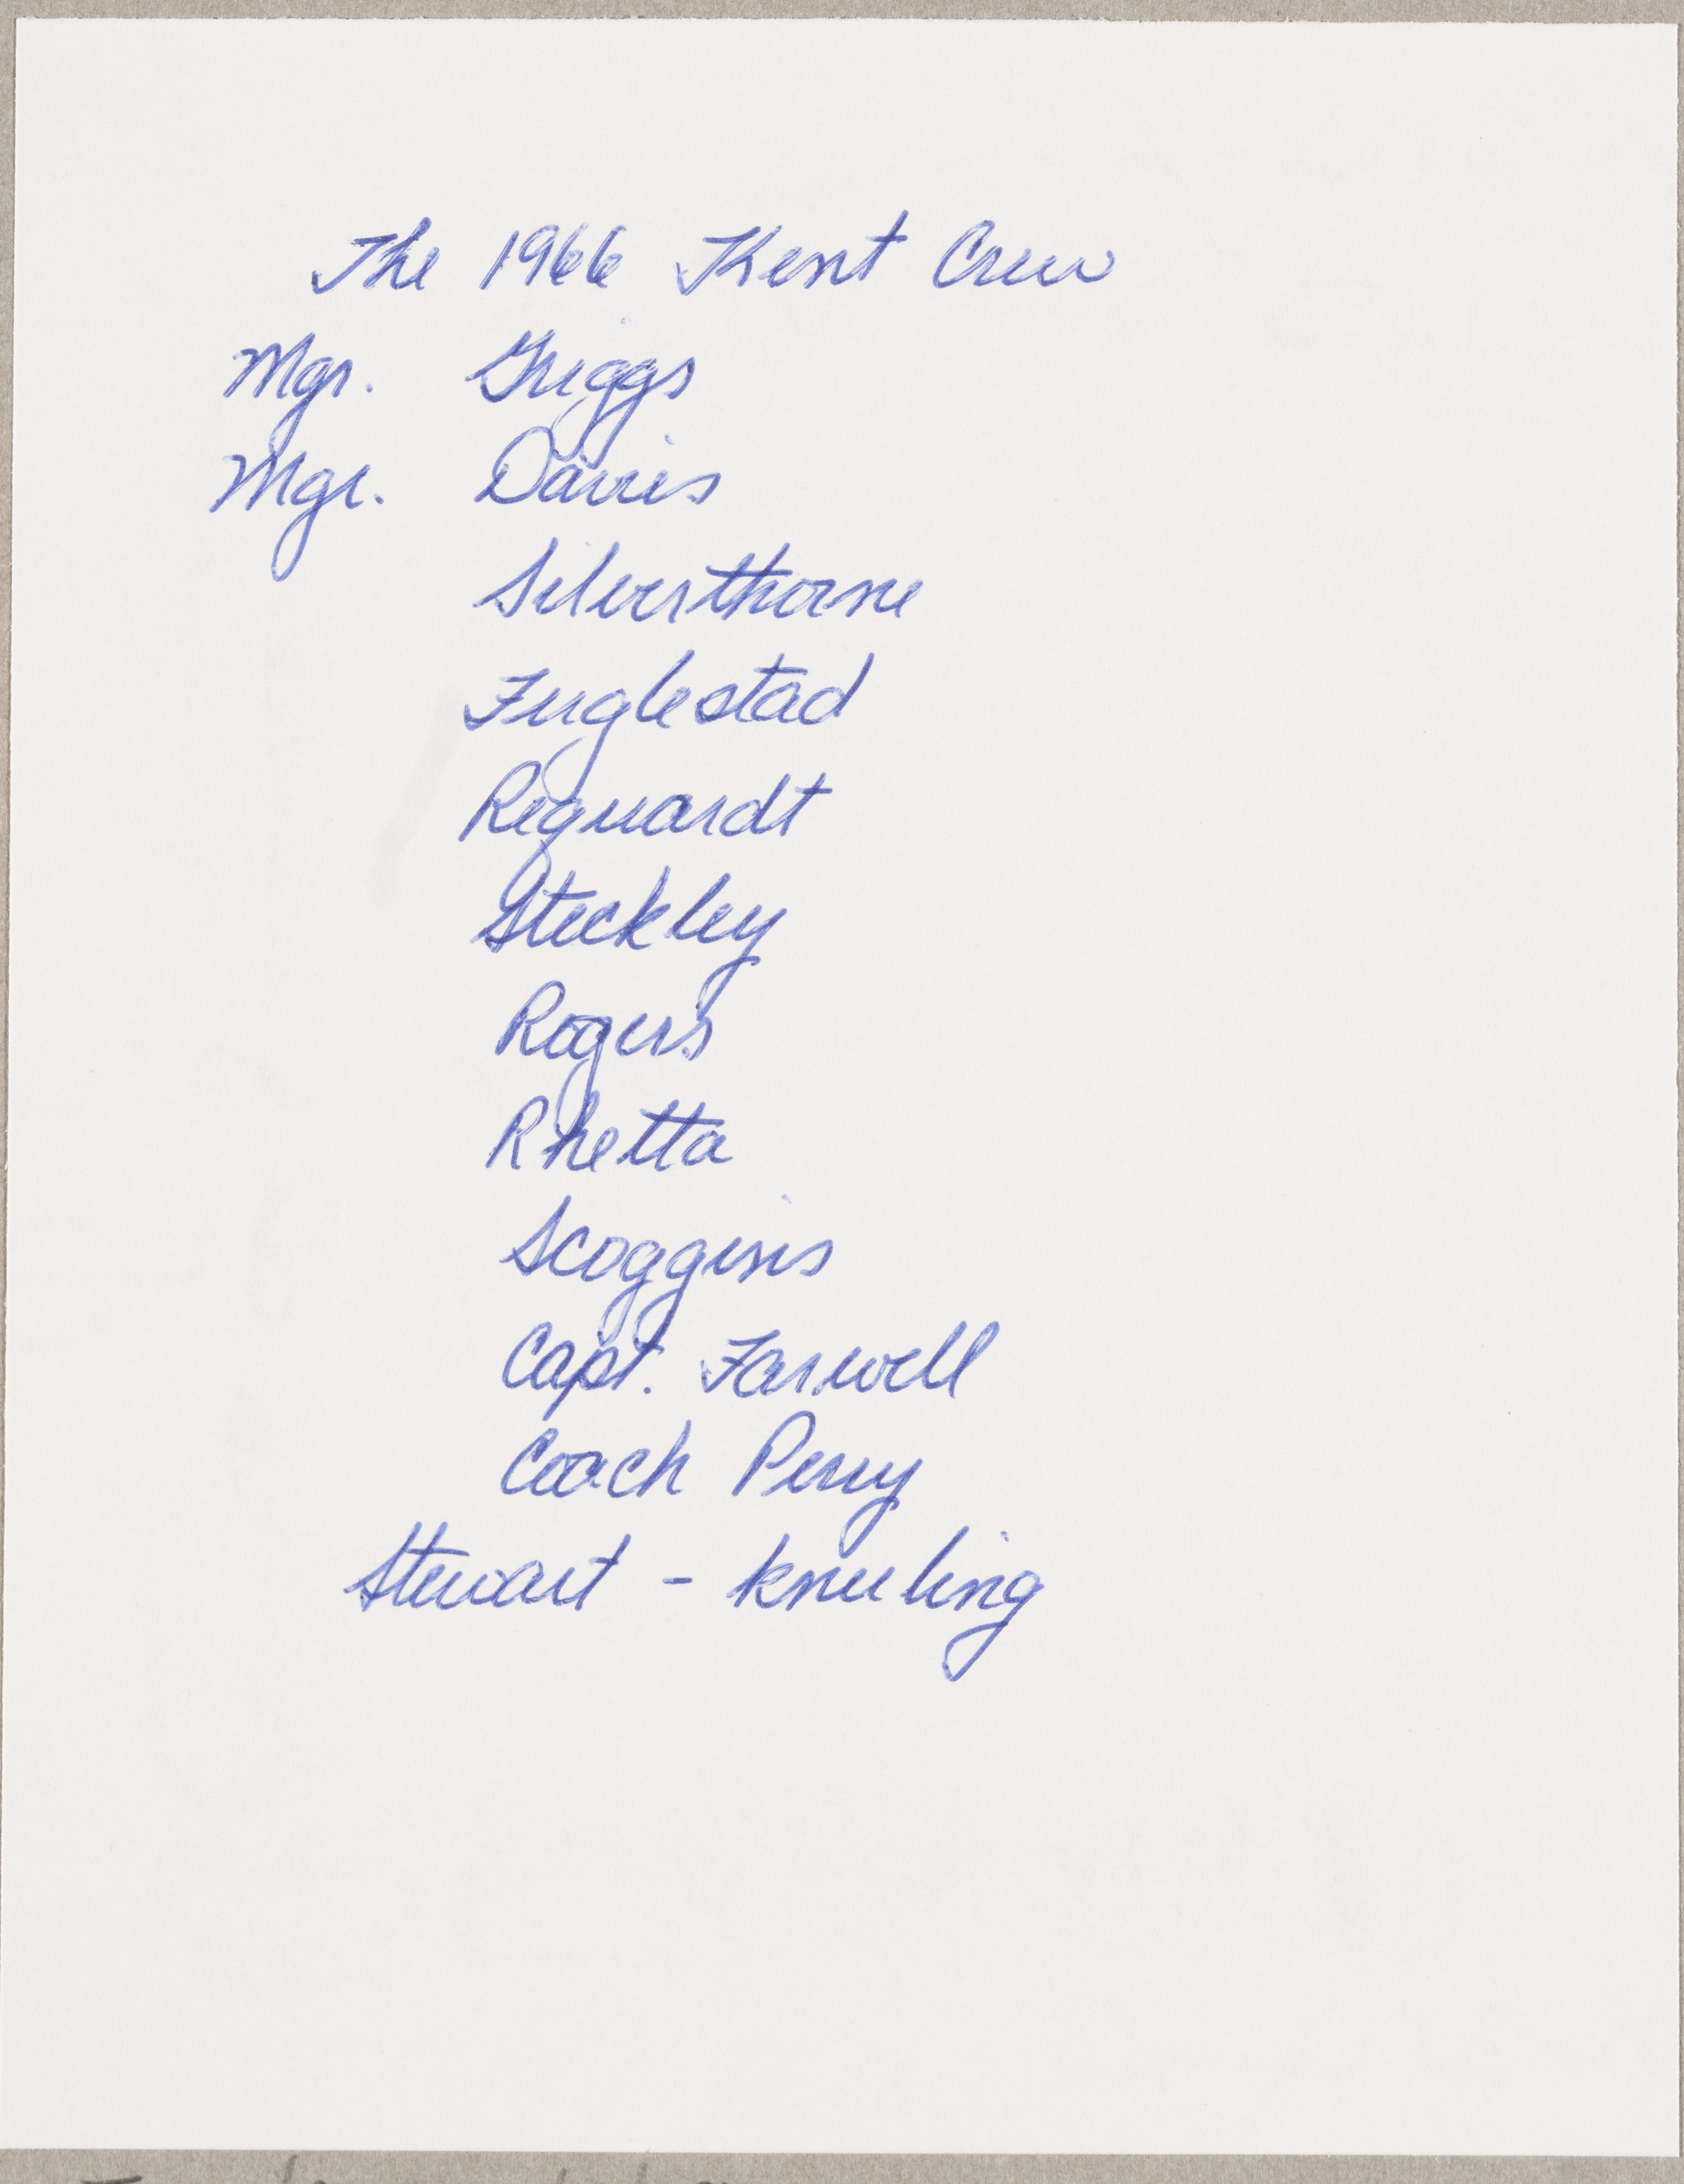 The 1966 Kent Crew
Mgr. Griggs
Mgr. Davies
Silverthorne
Fuglestad
Requardt
Steckley
Rogers
Rhetta
Scoggins
Capt. Farwell
Coach Perry
Stewart - kneeling